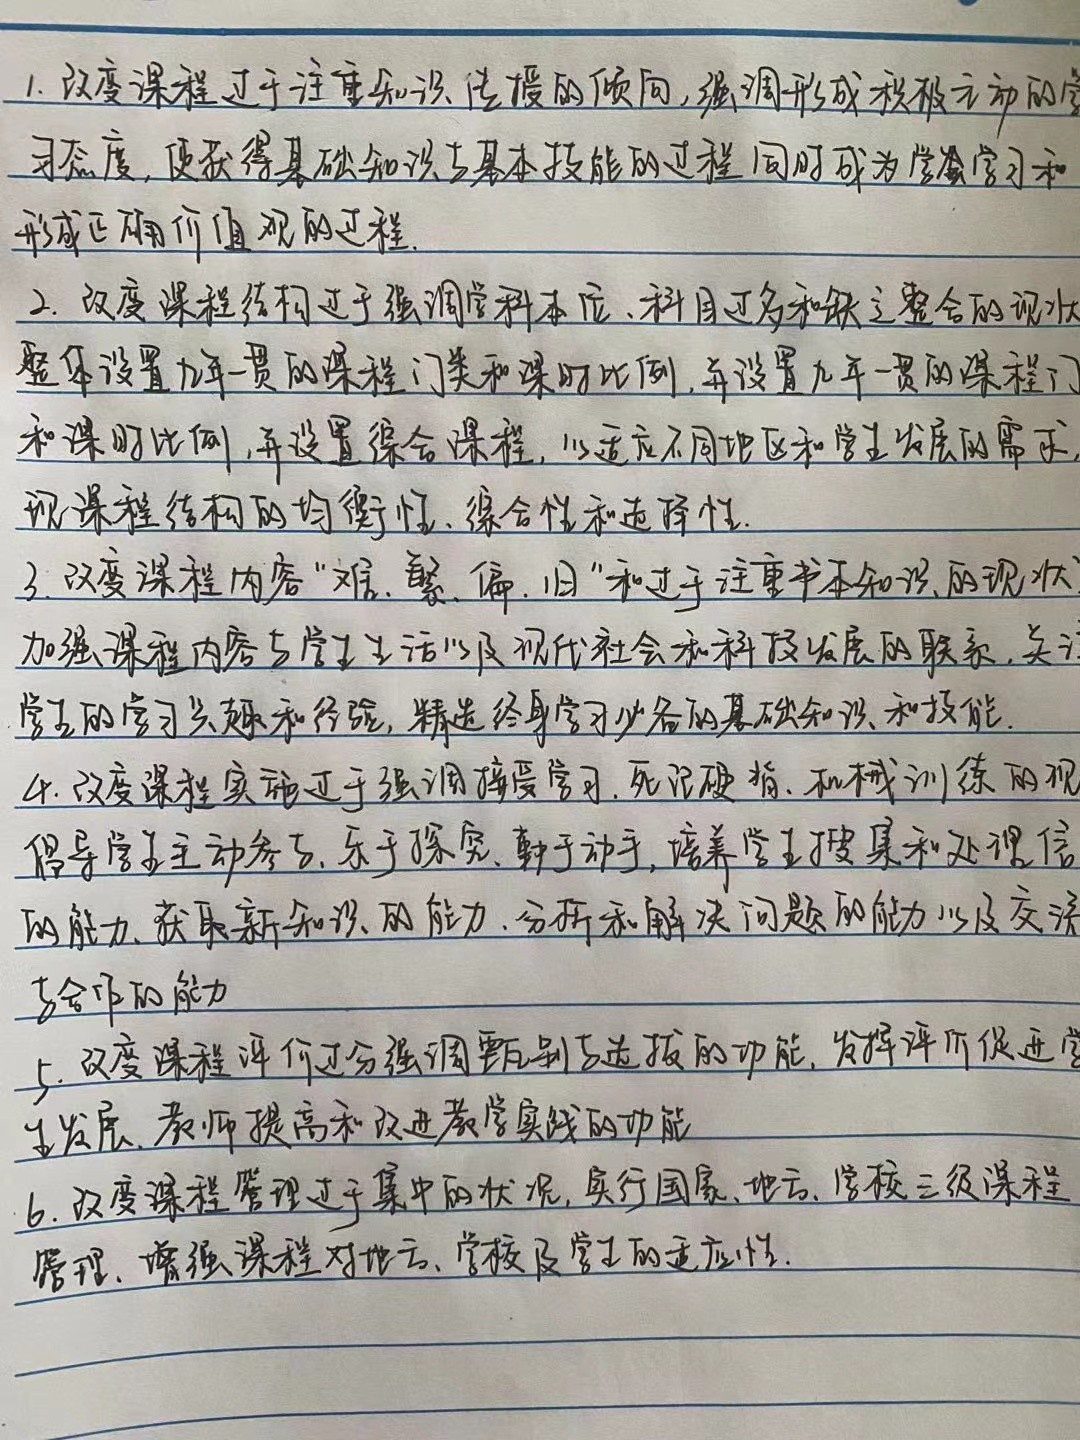 1. 改变课程过于注重知识传授的倾向,强调形成积极主动的学
习态度,使获得基础知识与基本技能的过程同时成为学会学习和
形成正确价值观的过程.
2. 改变课程结构过于强调学科本位、科目过多和缺乏整合的现状
整体设置九年一贯的课程门类和课时比例,并设置九年一贯的课程门
和课时比例,并设置综合课程,以适应不同地区和学生发展的需求,
现课程结构的均衡性、综合性和选择性.
3. 改变课程内容“难、繁、偏、旧”和过于注重书本知识的现状
加强课程内容与学生生活以及现代社会和科技发展的联系,关注
学生的学习兴趣和经验,精选终身学习必备的基础知识和技能.
4. 改变课程实施过于强调接受学习、死记硬背、机械训练的现
倡导学生主动参与、乐于探究、勤于动手,培养学生搜集和处理信
的能力、获取新知识的能力、分析和解决问题的能力以及交流
与合作的能力
5. 改变课程评价过分强调甄别与选拔的功能,发挥评价促进学
生发展、教师提高和改进教学实践的功能
6. 改变课程管理过于集中的状况,实行国家、地方、学校三级课程
管理、增强课程对地方、学校及学生的适应性.